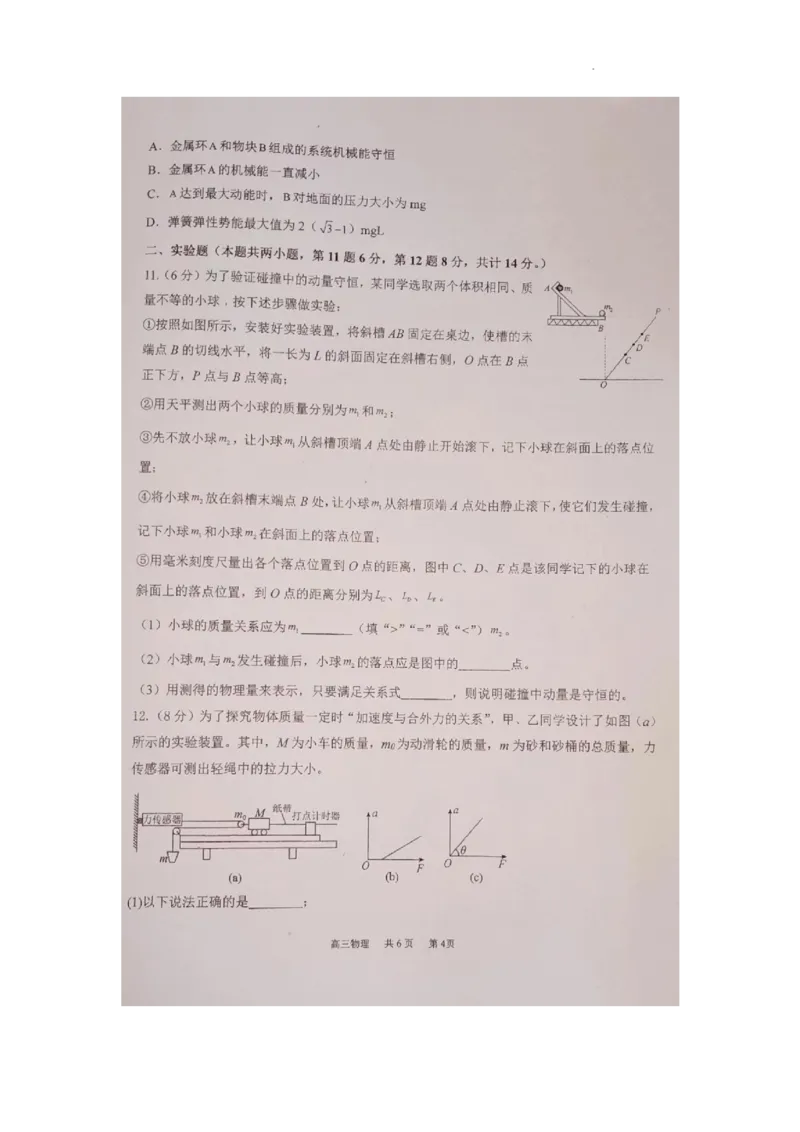 A．金属环A和物块B组成的系统机械能守恒
B．金属环A的机械能一直减小
C．A达到最大动能时，B对地面的压力大小为mg
D．弹簧弹性势能最大值为2（√3−1）mgL
二、实验题（本题共两小题，第11题6分，第12题8分，共计14分。）
11.（6分）为了验证碰撞中的动量守恒，某同学选取两个体积相同、质
量不等的小球，按下述步骤做实验：
①按照如图所示，安装好实验装置，将斜槽AB固定在桌边，使槽的末
端点B的切线水平，将一长为L的斜面固定在斜槽右侧，O点在B点
正下方，P点与B点等高；
A m₁
m₂
B
P
E
D
C
O
②用天平测出两个小球的质量分别为m₁和m₂；
③先不放小球m₂，让小球m₁从斜槽顶端A点处由静止开始滚下，记下小球在斜面上的落点位
置；
④将小球m₂放在斜槽末端点B处，让小球m₁从斜槽顶端A点处由静止滚下，使它们发生碰撞，
记下小球m₁和小球m₂在斜面上的落点位置；
⑤用毫米刻度尺量出各个落点位置到O点的距离，图中C、D、E点是该同学记下的小球在
斜面上的落点位置，到O点的距离分别为L_C、L_D、L_E。
（1）小球的质量关系应为m₁_______（填“>”“=”或“<”）m₂。
（2）小球m₁与m₂发生碰撞后，小球m₂的落点应是图中的_______点。
（3）用测得的物理量来表示，只要满足关系式_______，则说明碰撞中动量是守恒的。
12.（8分）为了探究物体质量一定时“加速度与合外力的关系”，甲、乙同学设计了如图（a）
所示的实验装置。其中，M为小车的质量，m₀为动滑轮的质量，m为砂和砂桶的总质量，力
传感器可测出轻绳中的拉力大小。
力传感器 m₀ M 纸带 打点计时器
m
(a)
a
O F
(b)
a
θ
O F
(c)
(1)以下说法正确的是_______；
高三物理 共6页 第4页